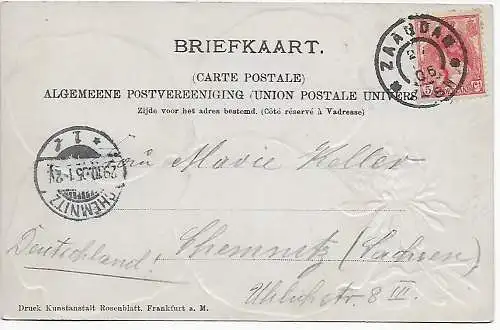 BRIEFKAART.
(CARTE POSTALE)
ALGEMEENE POSTVEREENIGING (UNION POSTALE UNIVERS
Zijde voor het adres bestemd. (Côté réservé à l'adresse)
ZAANDAM
CHEMNITZ
29.10.05.1-2N.
* 1. f *
Frau Marie Keller
Chemnitz (Sachsen)
Deutschland.
Uhlichstr. 8 III.
Druck Kunstanstalt Rosenblatt. Frankfurt a. M.